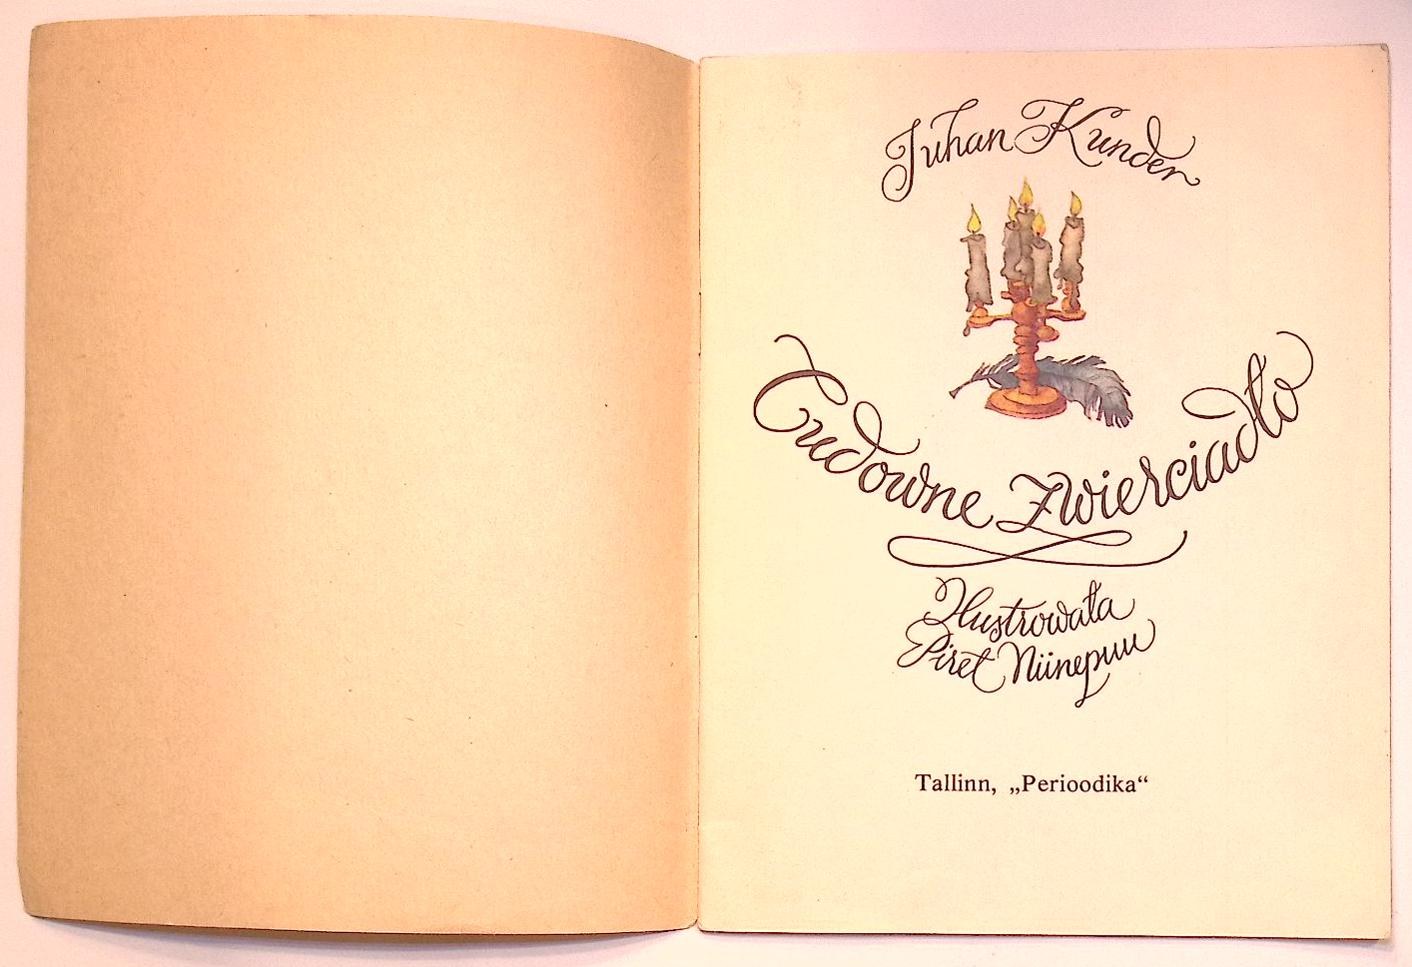 Juhan Kunder
Cudowne zwierciadło
Ilustrowała
Piret Niinepuu
Tallinn, „Perioodika“